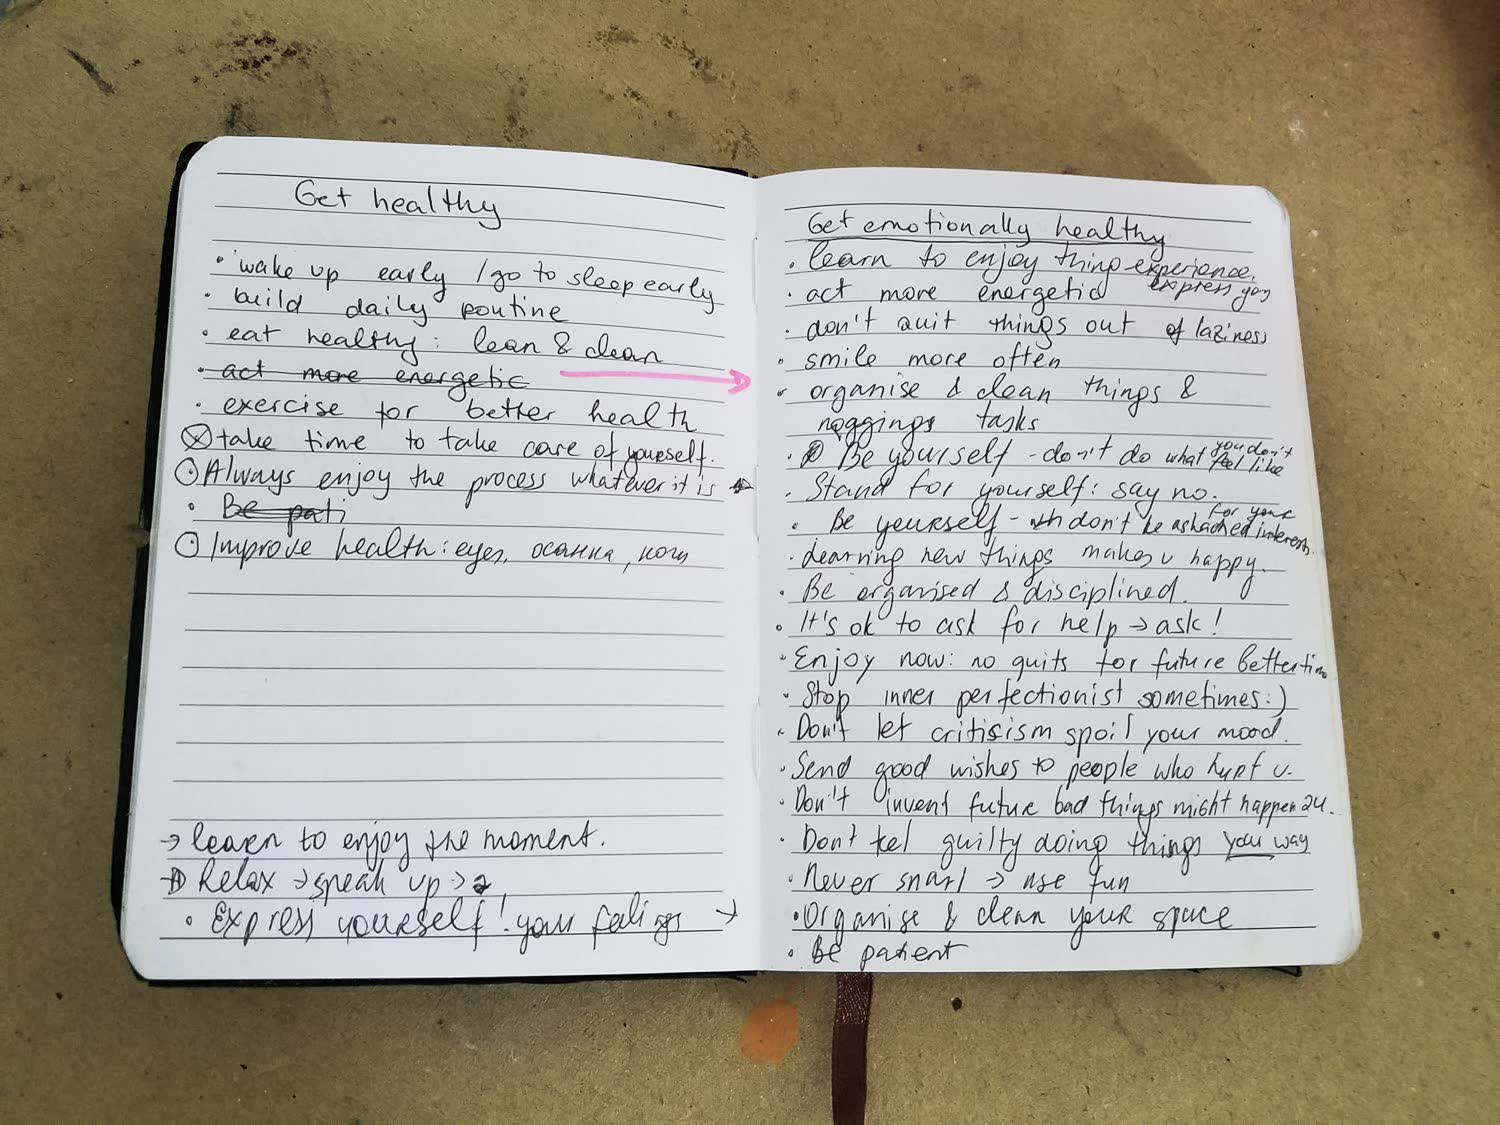 Get healthy
• wake up early / go to sleep early
• build daily routine
• eat healthy: lean & clean
• act more energetic →
• exercise for better health
take time to take care of yourself.
Always enjoy the process whatever it is →
• Be pati
Improve health: eyes, осанка, ноги
→ learn to enjoy the moment.
→ Relax → speak up →
• Express yourself! your feelings →
Get emotionally healthy
• learn to enjoy thing experience.
• act more energetic express joy
• don't quit things out of laziness
• smile more often
• organise & clean things &
noggings tasks
• Be yourself - don't do what you don't feel like
• Stand for yourself: say no.
• Be yourself - don't be ashamed for your interests
• Learning new things makes u happy.
• Be organised & disciplined.
• It's ok to ask for help → ask!
• Enjoy now: no quits for future better time
• Stop inner perfectionist sometimes:)
• Don't let critisism spoil your mood.
• Send good wishes to people who hurt u.
• Don't invent future bad things might happen 2u.
• Don't feel guilty doing things your way
• Never snarl → use fun
• Organise & clean your space
• Be patient